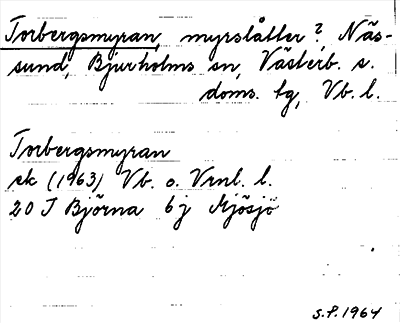 Torbergsmyran, myrslåtter?, Näs-
sund, Bjurholms sn, Västerb. s.
doms. tg, Vb. l.
Torbergsmyran
sk (1963) Vb. o. Vrnl. l.
20 J Björna 6 j Mjösjö
S.P. 1964